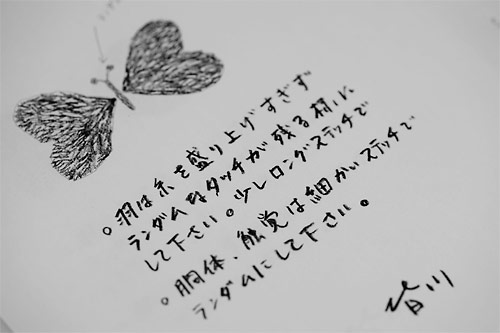 。羽は糸を盛り上げすぎず
ランダムなタッチが残る様に
して下さい。少しロングステッチで
。胴体、触覚は細かいステッチで
ランダムにして下さい。
皆川